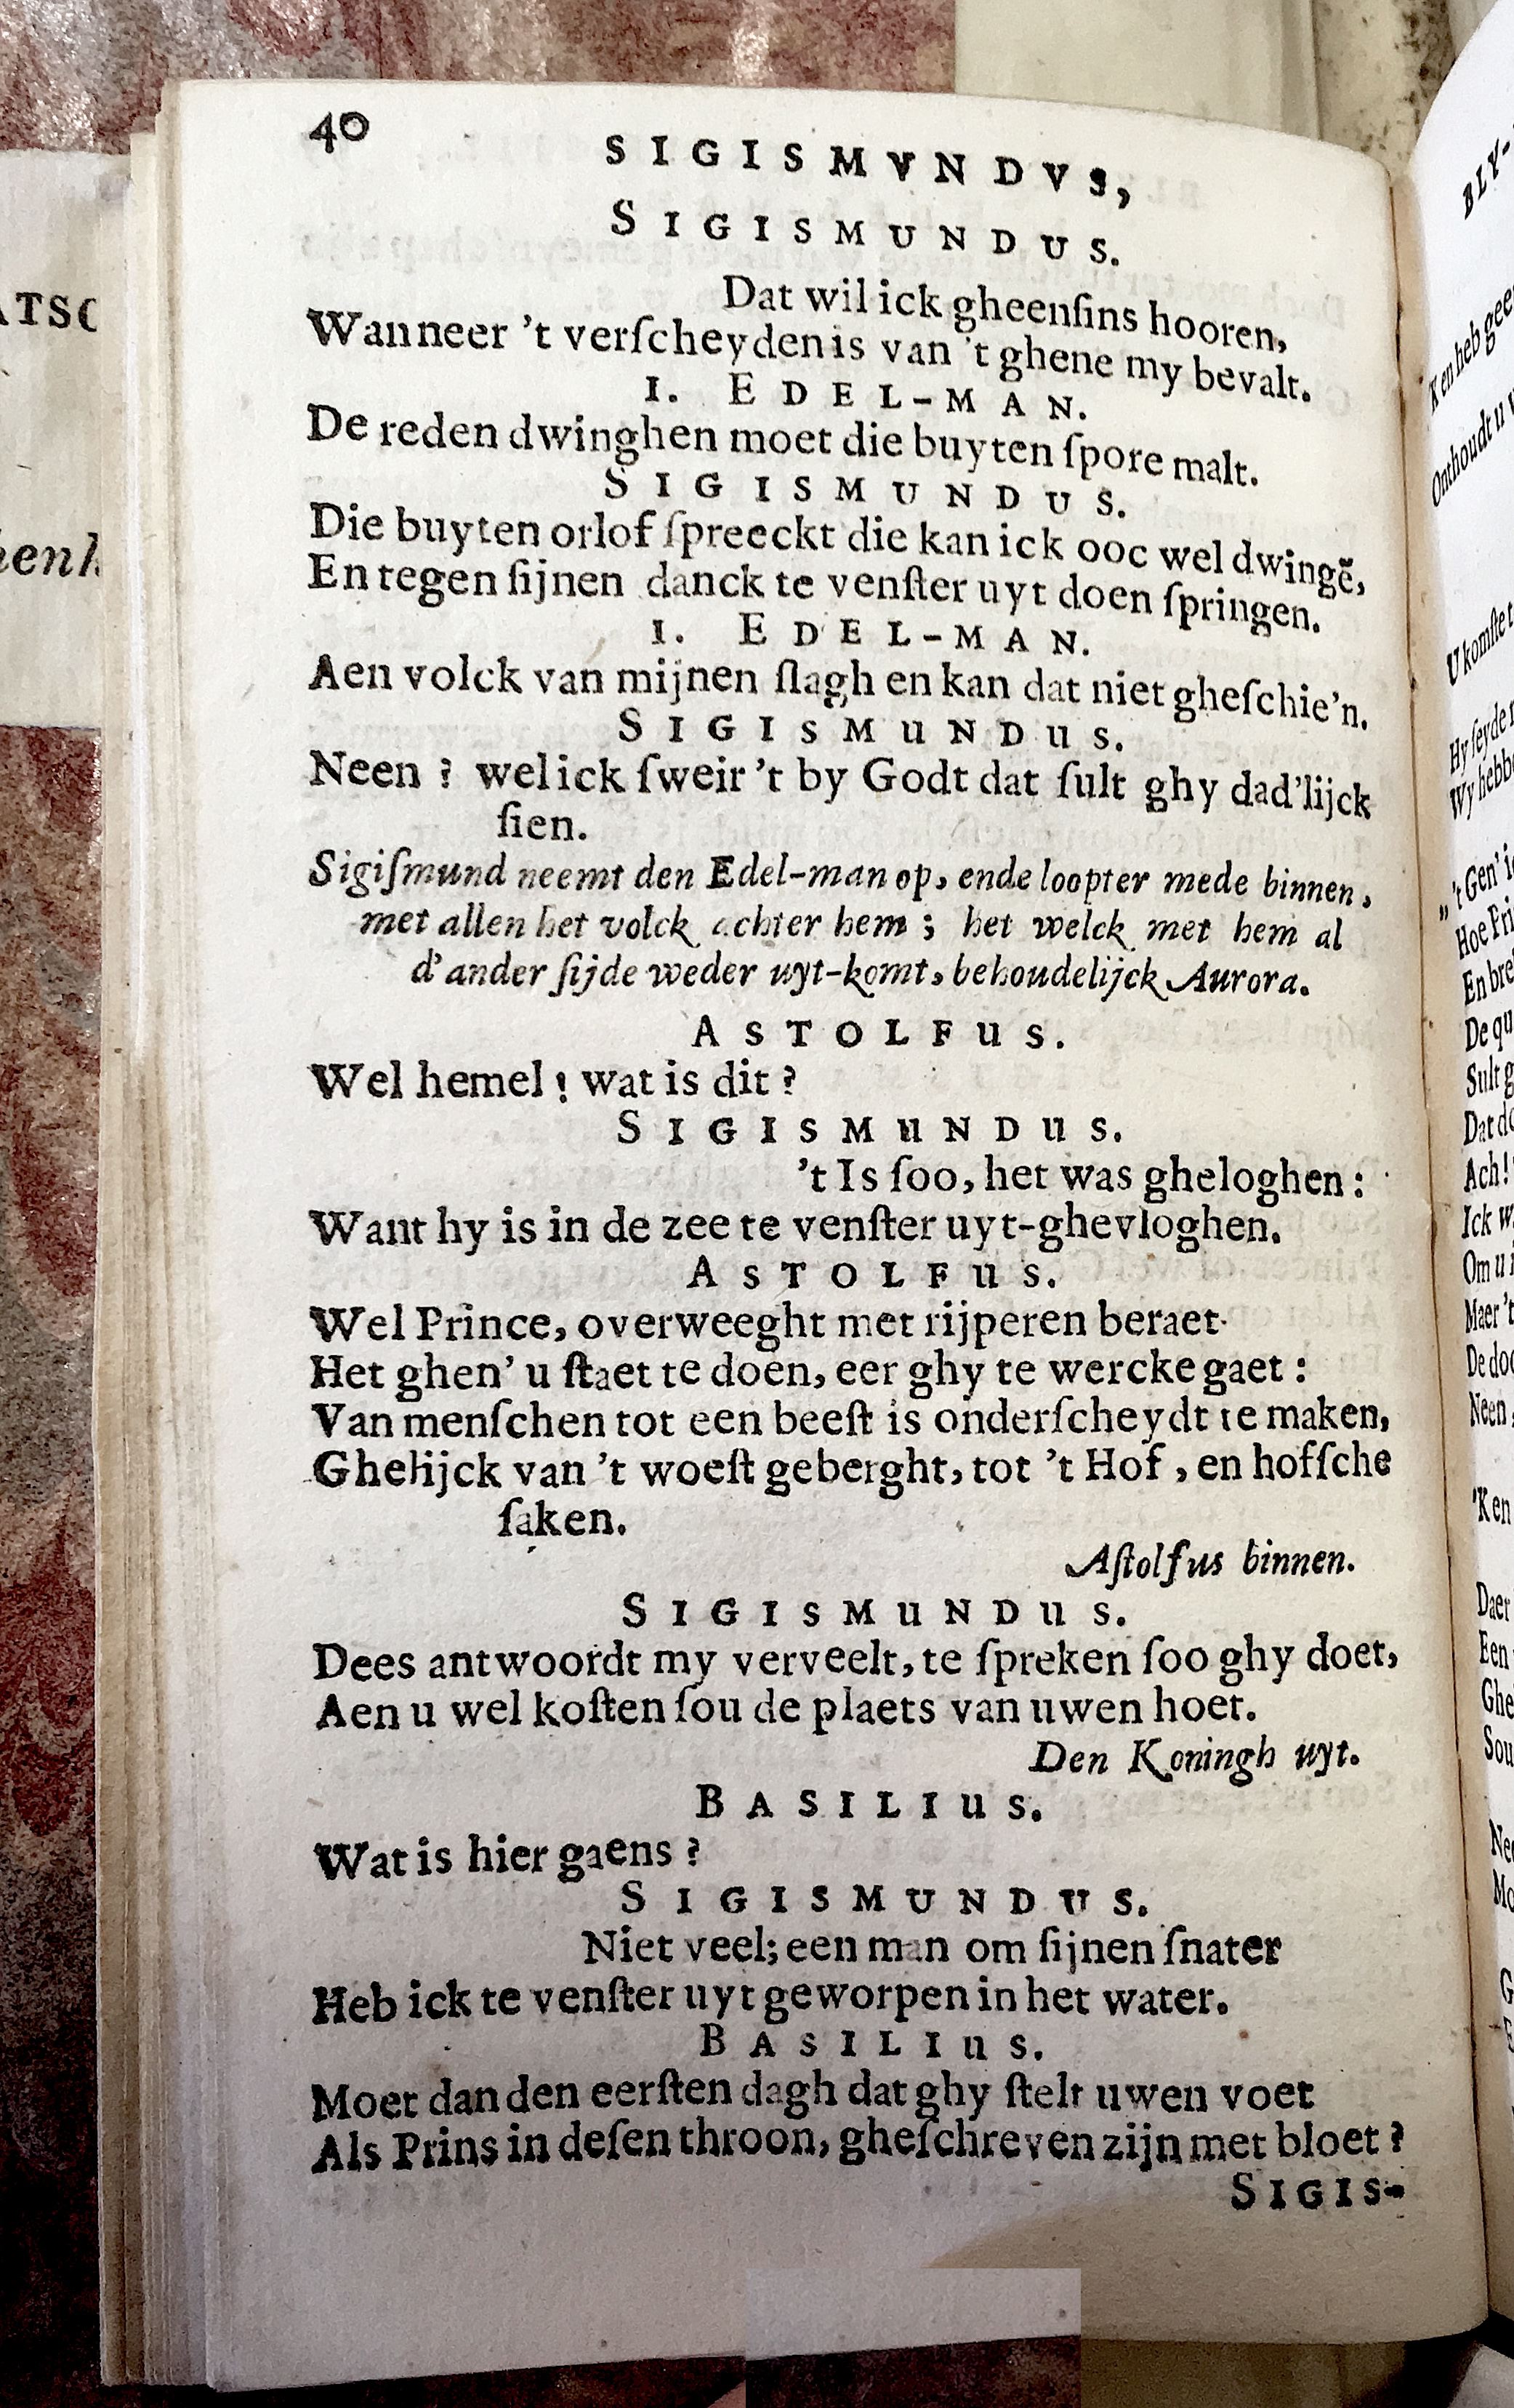 40
SIGISMVNDVS,
SIGISMUNDUS.
Dat wil ick gheenſins hooren,
Wanneer 't verſcheyden is van 't ghene my bevalt.
1. EDEL-MAN.
De reden dwinghen moet die buyten ſpore malt.
SIGISMUNDUS.
Die buyten orlof ſpreeckt die kan ick ooc wel dwingẽ,
En tegen ſijnen danck te venſter uyt doen ſpringen.
1. EDEL-MAN.
Aen volck van mijnen ſlagh en kan dat niet gheſchie'n.
SIGISMUNDUS.
Neen ? wel ick ſweir 't by Godt dat ſult ghy dad'lijck
ſien.
Sigiſmund neemt den Edel-man op, ende loopter mede binnen,
met allen het volck achter hem ; het welck met hem al
d'ander ſijde weder uyt-komt, behoudelijck Aurora.
ASTOLFUS.
Wel hemel ! wat is dit ?
SIGISMUNDUS.
't Is ſoo, het was gheloghen :
Want hy is in de zee te venſter uyt-ghevloghen.
ASTOLFUS.
Wel Prince, overweeght met rijperen beraet
Het ghen' u ſtaet te doen, eer ghy te wercke gaet :
Van menſchen tot een beeſt is onderſcheydt te maken,
Ghelijck van 't woeſt geberght, tot 't Hof, en hofſche
ſaken.
Aſtolfus binnen.
SIGISMUNDUS.
Dees antwoordt my verveelt, te ſpreken ſoo ghy doet,
Aen u wel koſten ſou de plaets van uwen hoet.
Den Koningh uyt.
BASILIUS.
Wat is hier gaens ?
SIGISMUNDUS.
Niet veel; een man om ſijnen ſnater
Heb ick te venſter uyt geworpen in het water.
BASILIUS.
Moet dan den eerſten dagh dat ghy ſtelt uwen voet
Als Prins in deſen throon, gheſchreven zijn met bloet ?
SIGIS-
BLY-
K en heb gee
Onthoudt u
U komſte t
Hy ſeyde
Wy hebb
„ 't Gen' i
Hoe Pri
En bre
De qu
Sult g
Dat do
Ach!
Ick w
Om u
Maer 't
De doo
Neen,
'K en
Daer
Een
Ghe
Sou